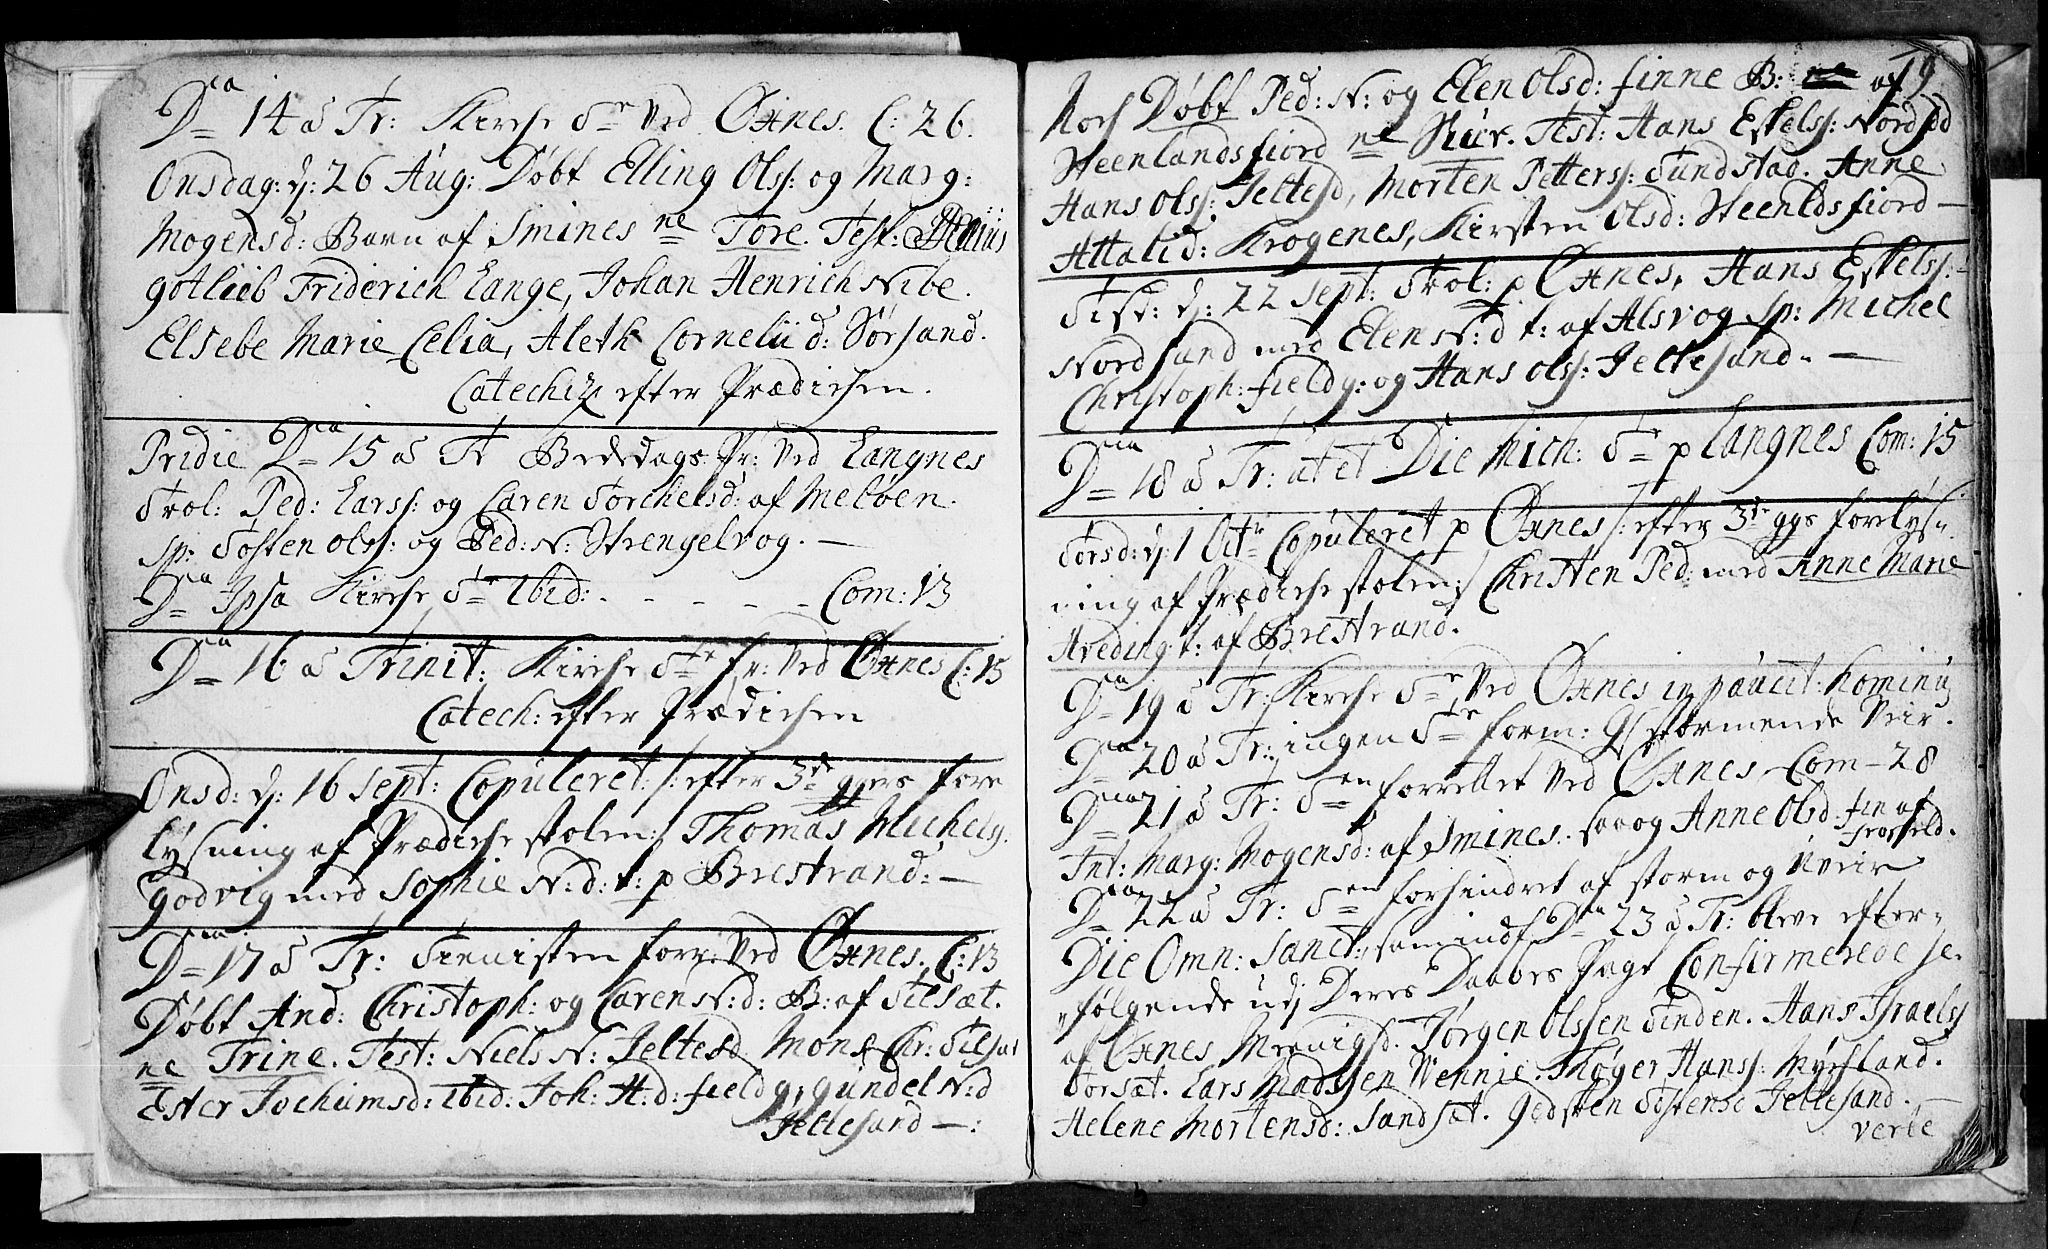 Dca 14 a Tr: Kirche Ste ved Øxnes. C: 26.
Onsdag: d: 26 Aug: Døbt Elling Olss: og Marg:
Mogensd: Barn af Smines ne Tore. Test:
gotlieb Friderich Lange, Johan Henrich Nibe.
Elsebe Marie Celia, Aleth Cornelii d: Sørsand.
Catechiz efter Prædichen.
Pridie Dca 15 a Tr Bededags Pr: ved Langnes
Trol: Ped: Larss: og Caren Torchelsd: af Meløen.
Sp: Tosten Olss: og Ped: N: Strengelvog. —
Dca Ipsa Kirche Ste Ibid: - - - - - Com: 13
Dca 16 a Trinit: Kirche Ste fr: ved Øxnes C: 15
Catech: efter Prædichen
Onsd: d: 16 Sept: Copuleret /: efter 3de gges fore
lysning af Prædiche stolen :/ Thomas Michels:
godvig med Sophie N: d: t: p Brestrand: —
Dca 17 a Tr: Tienisten forr: ved Øxnes. C: 13
Døbt And: Christoph: og Caren N: d: B: af Tilsæt.
ne Trine. Test: Niels N: Jeltesd Mons Chr: Tilsæt
Ester Jochumsd: Ibid: Joh: H: d: fieldg, gundel N: d
Jeltesand —:
19
Noch Døbt Ped: N: og Elen Olsd: finne B: af
Steenlandsfiord ne Siur. Test: Hans Eskelss: Nordsd
Hans Olss: Jeltesd, Morten Petterss: Sundstad. Anne
Attalid: Krogenes, Kirsten Olsd: Steenldsfiord —
Tisd: d: 22 Sept: Trol: p Øxnes, Hans Eskelss: —
Nordsand med Elen N: d t: af Alsvog Sp: Michel
Christoph: fieldg: og Hans Olss: Jeltesand. —
Dca 18 a Tr: ut et Die Mich: Ste p Langnes Com: 15
Torsd: d: 1 Octr Copuleret p Øxnes /: efter 3de ggs forelys:
ning af Prædiche stolen :/ Christen Ped: med Anne Marie
Hveding t: af Brestrand.
Dca 19 a Tr: Kirche Ste ved Øxnes in paucit: hominu
Dca 20 a Tr: ingen Ste form: stormende Veir.
Dca 21 a Tr: Sten forrettet ved Øxnes Com — 28
Int: Marg: Mogensd: af Smines. saaog Anne Olsd. fin af
Dca 22 a Tr: Sten forhindret af storm og Uveir
Die Omn: Sanct: som indf: Dca 23 a Tr: bleve efter-
følgende udj Deres Daabes Pagt Confirmerede se.
af Øxnes Menigd. Jørgen Olssen Tinden. Hans Israelss
Torsæt. Lars Madssen Vennie. Thøger Hanss: Myrland.
Helene Mortensd: Sandsæt. Gedsken Tostensd Jeltesand. —
verte